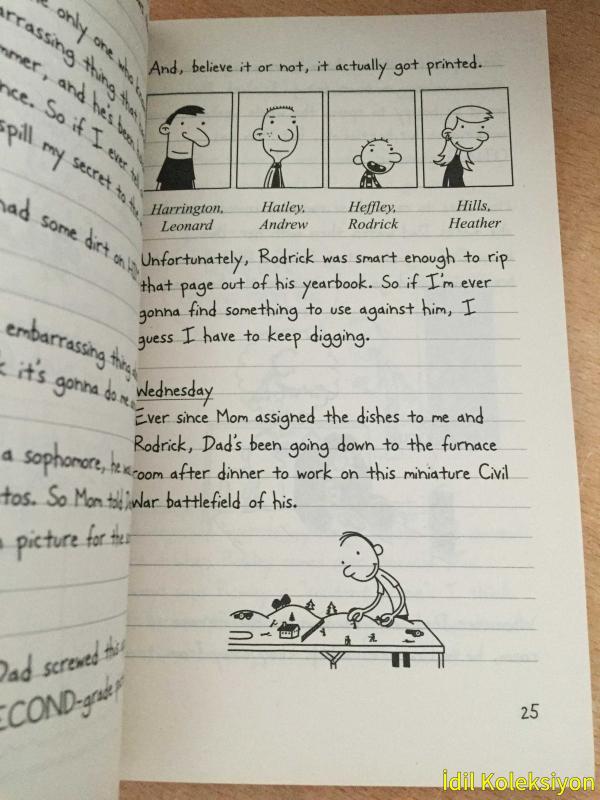 he only one who
arrassing thing that
mmer, and he's been
nce. So if I ever
spill my secret to the
had some dirt on
embarrassing thing
it's gonna do me
a sophomore, he
tos. So Mom told
picture for the
Dad screwed this
ECOND-grade
And, believe it or not, it actually got printed.
Harrington, Leonard
Hatley, Andrew
Heffley, Rodrick
Hills, Heather
Unfortunately, Rodrick was smart enough to rip
that page out of his yearbook. So if I'm ever
gonna find something to use against him, I
guess I have to keep digging.
Wednesday
Ever since Mom assigned the dishes to me and
Rodrick, Dad's been going down to the furnace
room after dinner to work on this miniature Civil
War battlefield of his.
25
İdil Koleksiyon